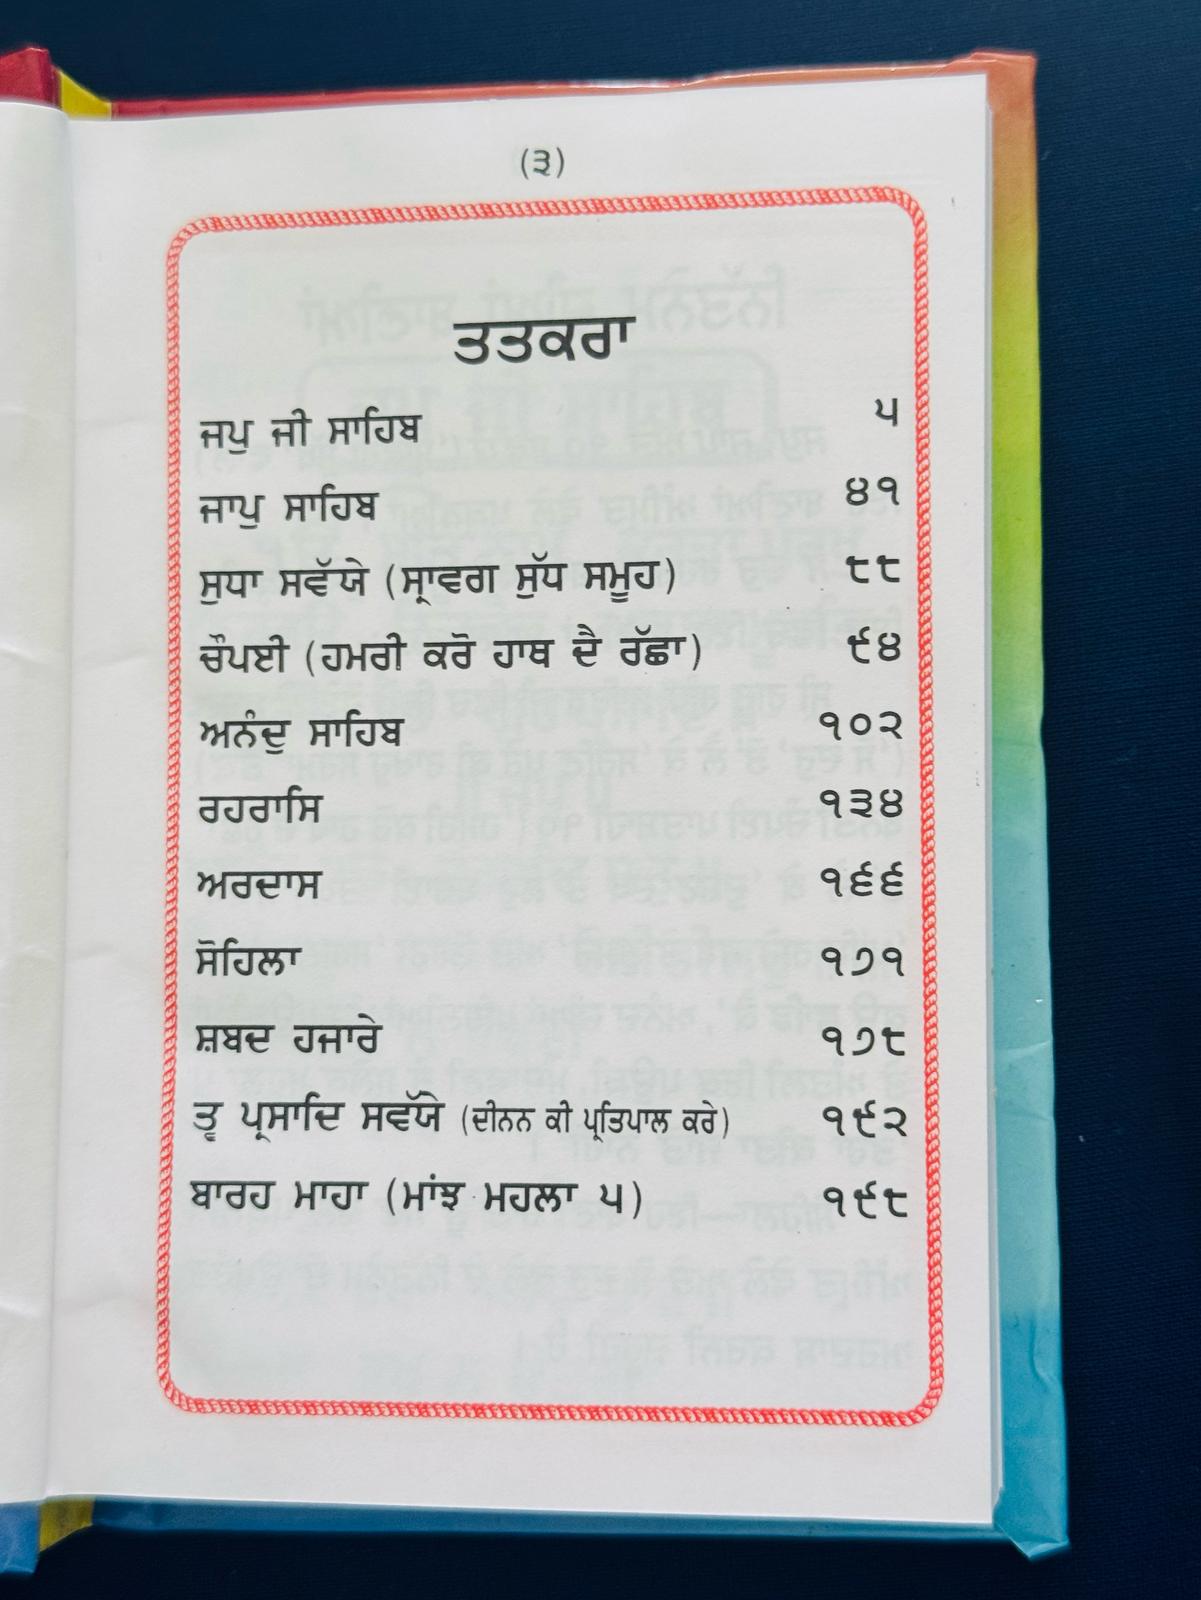 (੩)
ਤਤਕਰਾ
ਜਪੁ ਜੀ ਸਾਹਿਬ ੫
ਜਾਪੁ ਸਾਹਿਬ ੪੧
ਸੁਧਾ ਸਵੱਯੇ (ਸ੍ਰਾਵਗ ਸੁੱਧ ਸਮੂਹ) ੮੮
ਚੌਪਈ (ਹਮਰੀ ਕਰੋ ਹਾਥ ਦੈ ਰੱਛਾ) ੯੪
ਅਨੰਦੁ ਸਾਹਿਬ ੧੦੨
ਰਹਰਾਸਿ ੧੩੪
ਅਰਦਾਸ ੧੬੬
ਸੋਹਿਲਾ ੧੭੧
ਸ਼ਬਦ ਹਜਾਰੇ ੧੭੮
ਤ੍ਵ ਪ੍ਰਸਾਦਿ ਸਵੱਯੇ (ਦੀਨਨ ਕੀ ਪ੍ਰਤਿਪਾਲ ਕਰੇ) ੧੯੨
ਬਾਰਹ ਮਾਹਾ (ਮਾਂਝ ਮਹਲਾ ੫) ੧੯੮